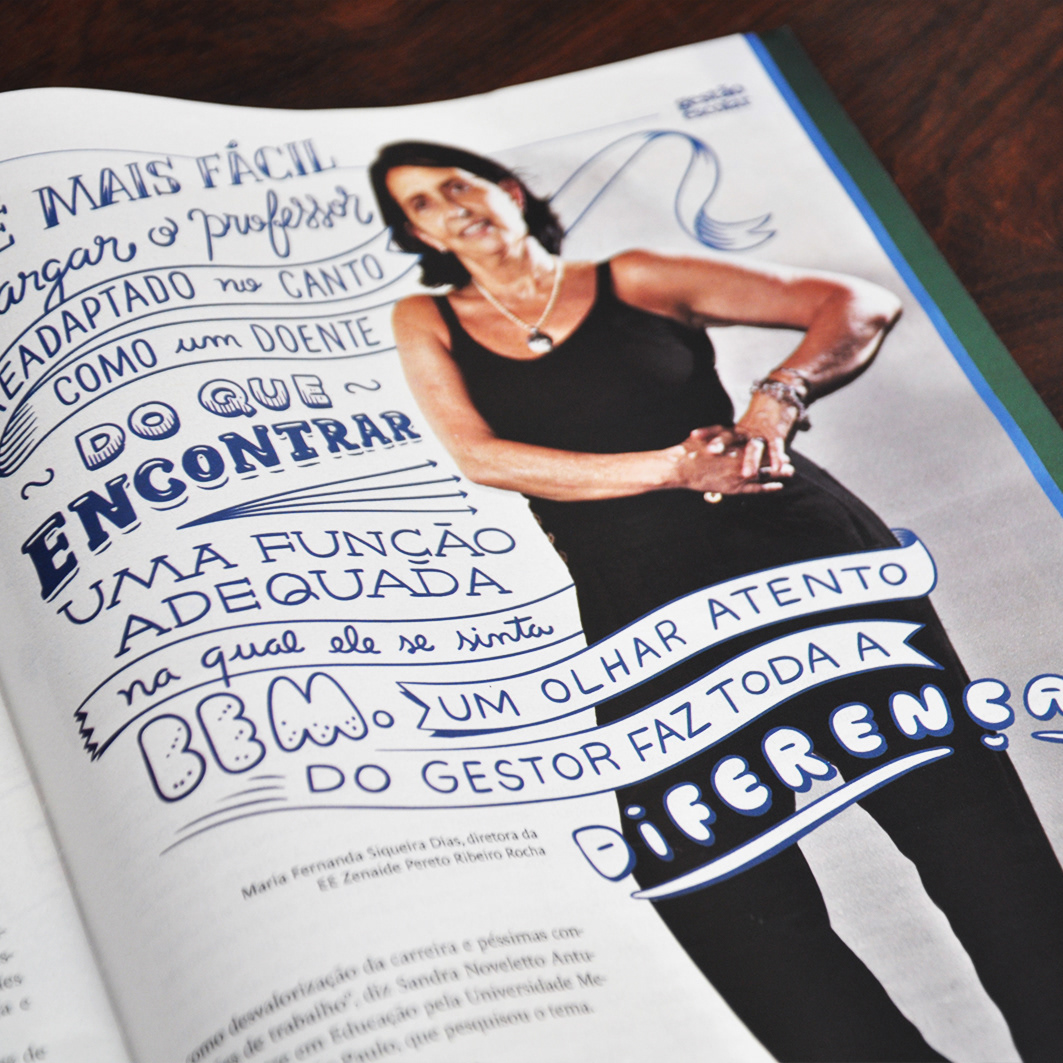 gestão
escolar
É MAIS FÁCIL
largar o professor
READAPTADO no CANTO
COMO um DOENTE
~ DO QUE ~
ENCONTRAR
UMA FUNÇÃO
ADEQUADA
na qual ele se sinta
BEM. UM OLHAR ATENTO
DO GESTOR FAZ TODA A
DIFERENÇA
Maria Fernanda Siqueira Dias, diretora da
EE Zenaide Pereto Ribeiro Rocha
como desvalorização da carreira e péssimas con-
de trabalho”, diz Sandra Noveletto Antu-
em Educação pela Universidade Me-
Paulo, que pesquisou o tema.